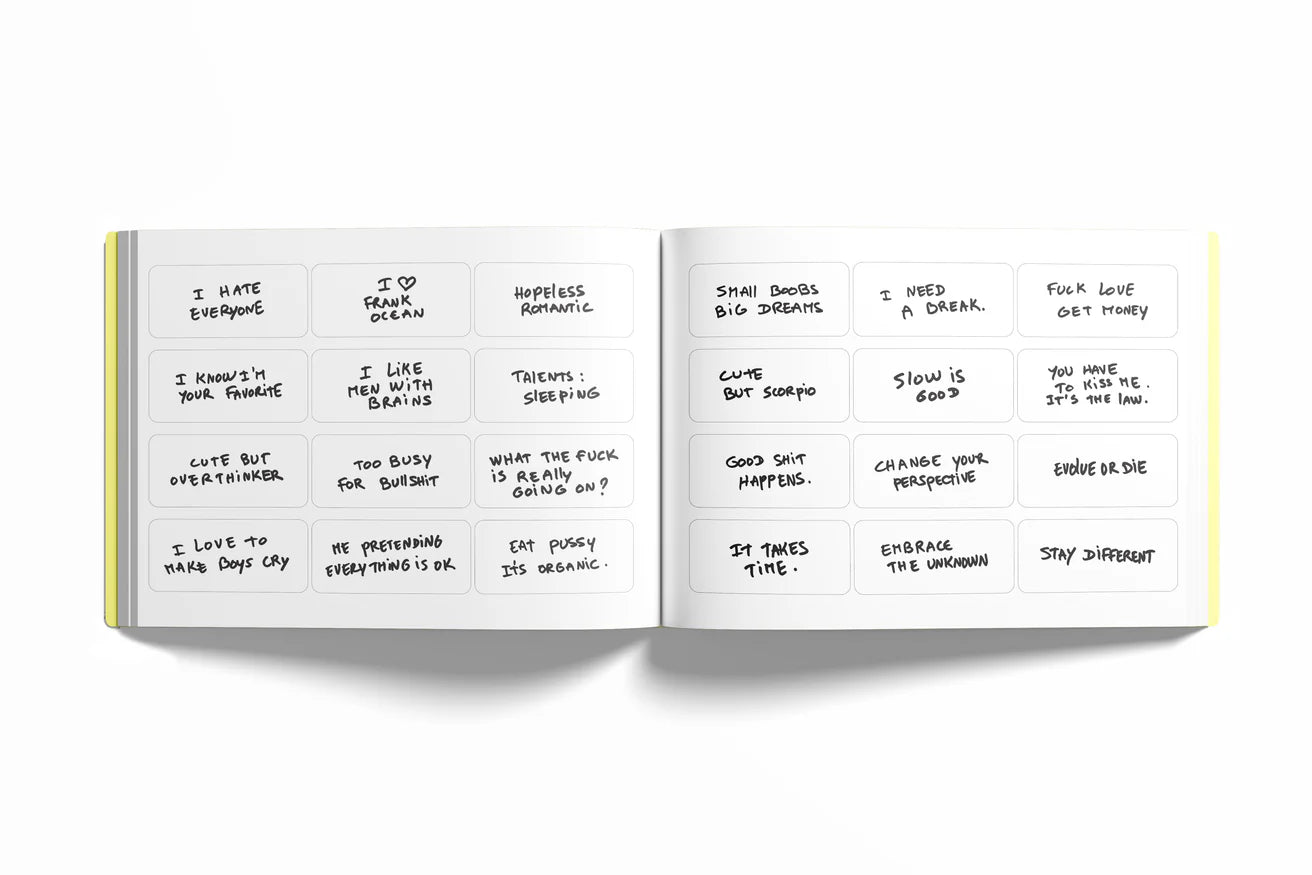 I HATE
EVERYONE
I ♡
FRANK
OCEAN
HOPElESS
ROMANTiC
I KNOW I'M
YOUR FAVORiTE
I LiKE
MEN WiTH
BRAiNS
TAlENTS :
SlEEPiNG
CUTE BUT
OVERTHiNKER
TOO BUSY
FOR BUllSHiT
WHAT THE FUCK
iS REAlly
GOiNG ON?
I LOVE TO
MAKE BOYS CRY
ME PRETENDiNG
EVERYTHiNG iS OK
EAT PUSSY
ITS ORGANiC.
SMAll BOOBS
BiG DREAMS
I NEED
A BREAK.
FUCK LOVE
GET MONEY
CUTE
BUT SCORPiO
SlOW iS
GOOD
YOU HAVE
TO KiSS ME.
IT'S THE lAW.
GOOD SHiT
HAPPENS.
CHANGE YOUR
PERSPECTiVE
EVOlVE OR DiE
IT TAKES
TiME.
EMBRACE
THE UNKNOWN
STAY DiFFERENT